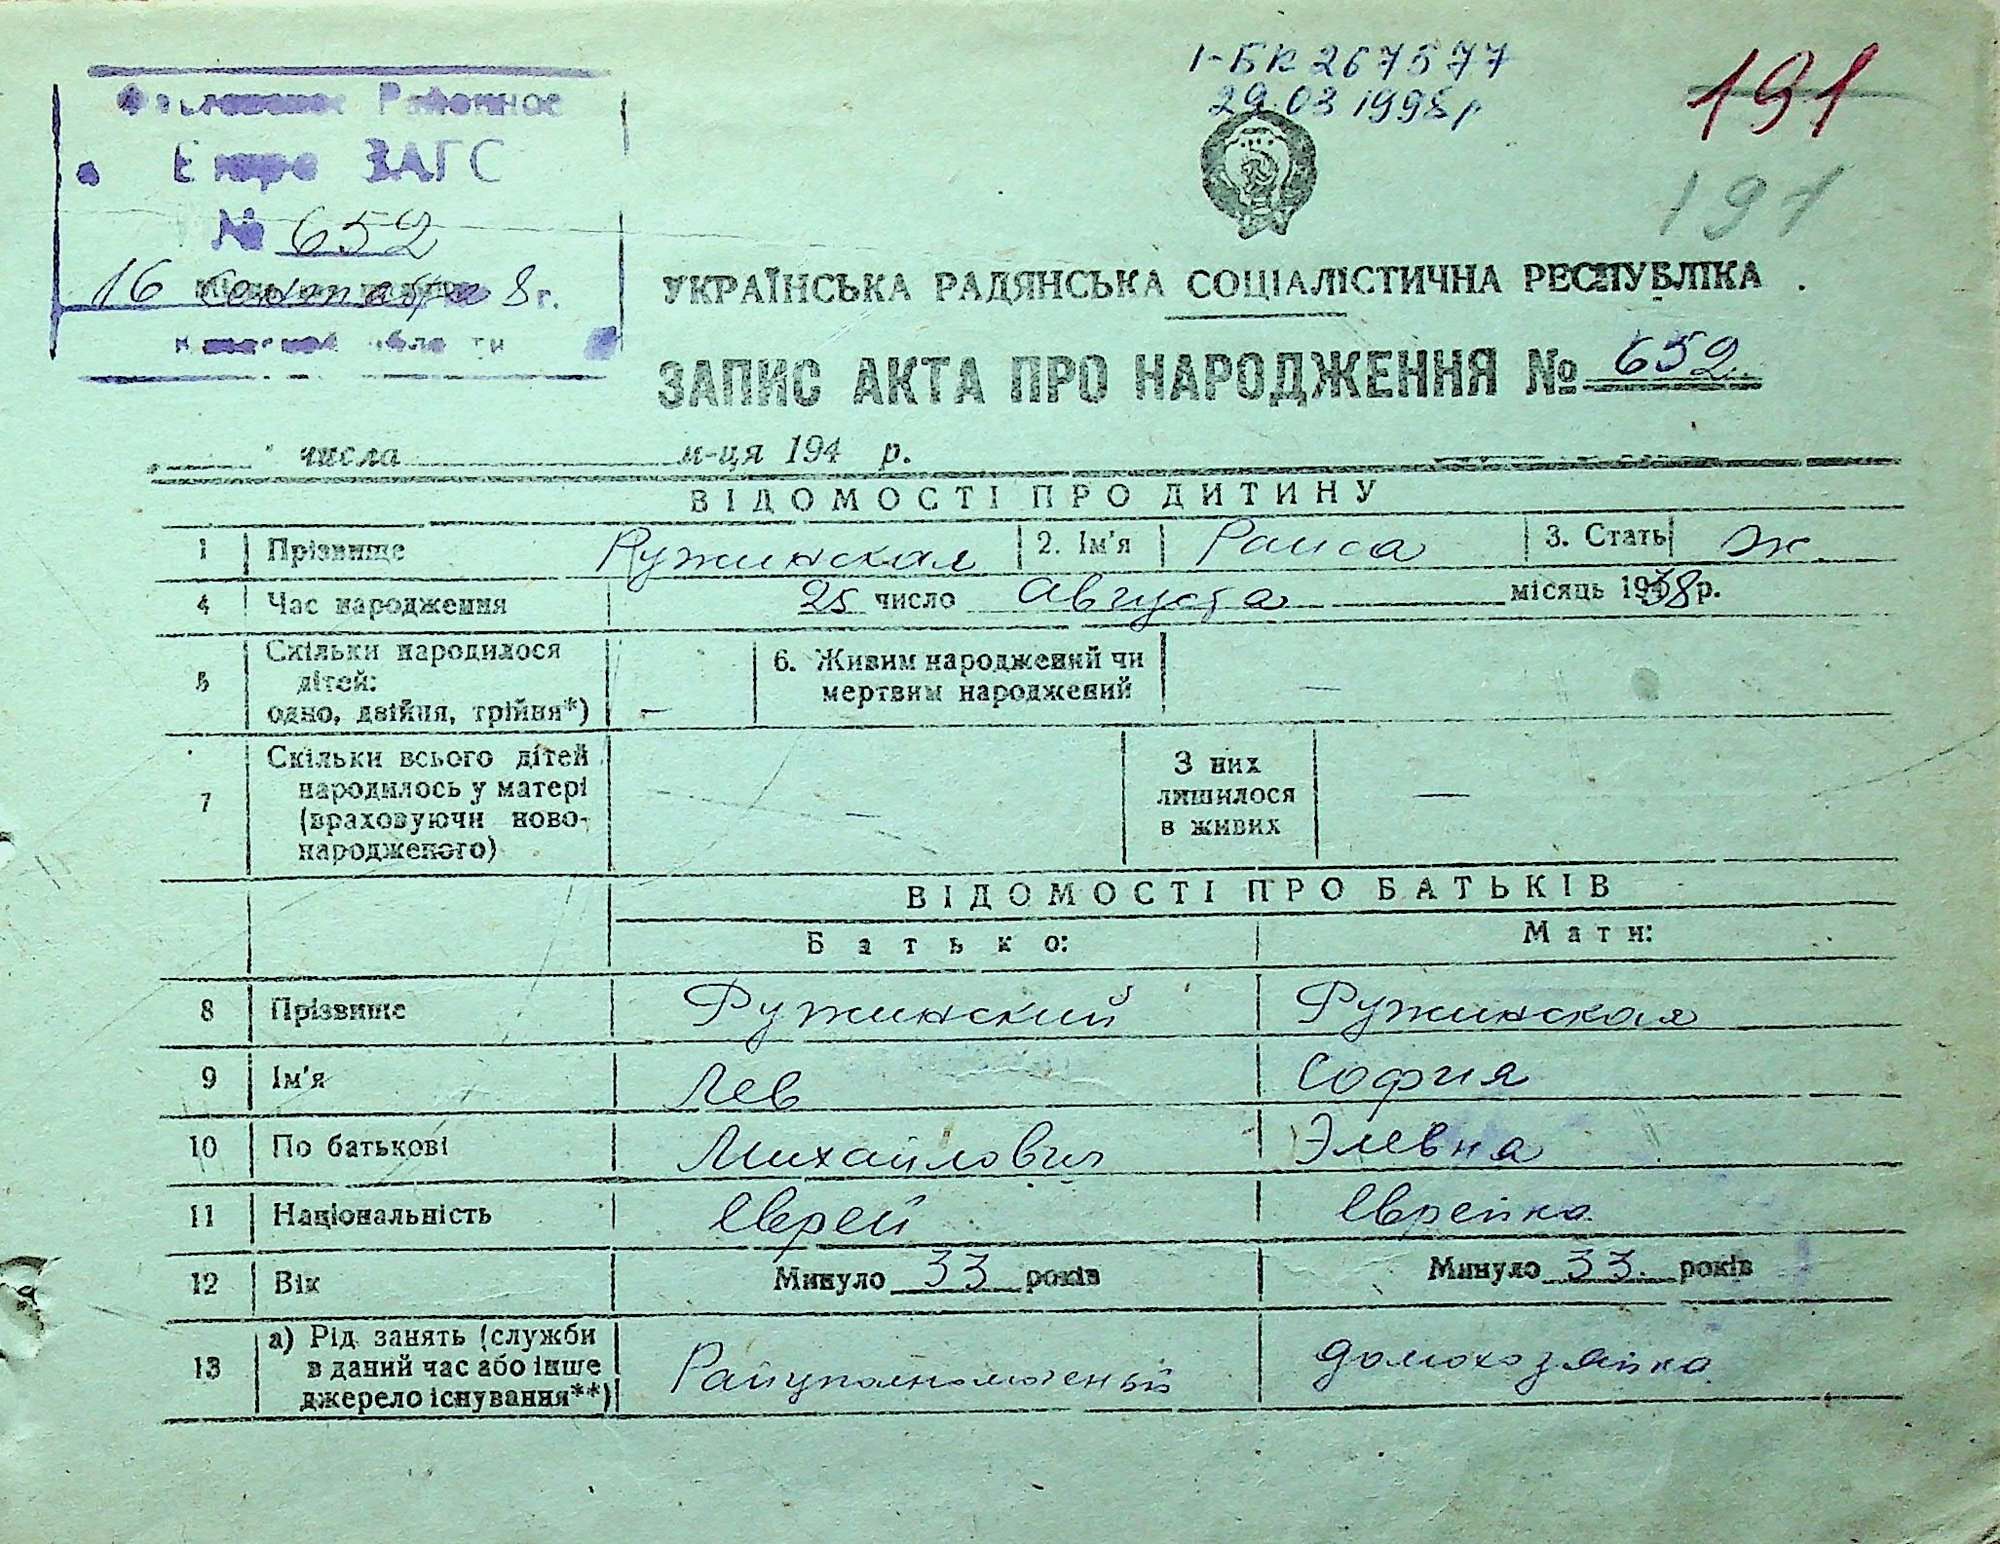 І-БК 267577
29.03 1998р
191
191
Районное
Бюро ЗАГС
№ 652
16 сентября 8 г.
области
УКРАЇНСЬКА РАДЯНСЬКА СОЦІАЛІСТИЧНА РЕСПУБЛІКА
ЗАПИС АКТА ПРО НАРОДЖЕННЯ № 652
числа м-ця 194 р.
ВІДОМОСТІ ПРО ДИТИНУ
1 Прізвище Ружинская 2. Ім'я Раиса 3. Стать ж
4 Час народження 25 число августа місяць 1938 р.
5 Скільки народилося дітей: одно, двійня, трійня*) — 6. Живим народжений чи мертвим народжений —
7 Скільки всього дітей народилось у матері (враховуючи ново-народженого) — З них лишилося в живих —
ВІДОМОСТІ ПРО БАТЬКІВ
Батько: Мати:
8 Прізвище Ружинский Ружинская
9 Ім'я Лев София
10 По батькові Михайлович Элевна
11 Національність Еврей Еврейка
12 Вік Минуло 33 років Минуло 33 років
13 а) Рід занять (служби в даний час або інше джерело існування**) Райуполномоченый домохозяйка